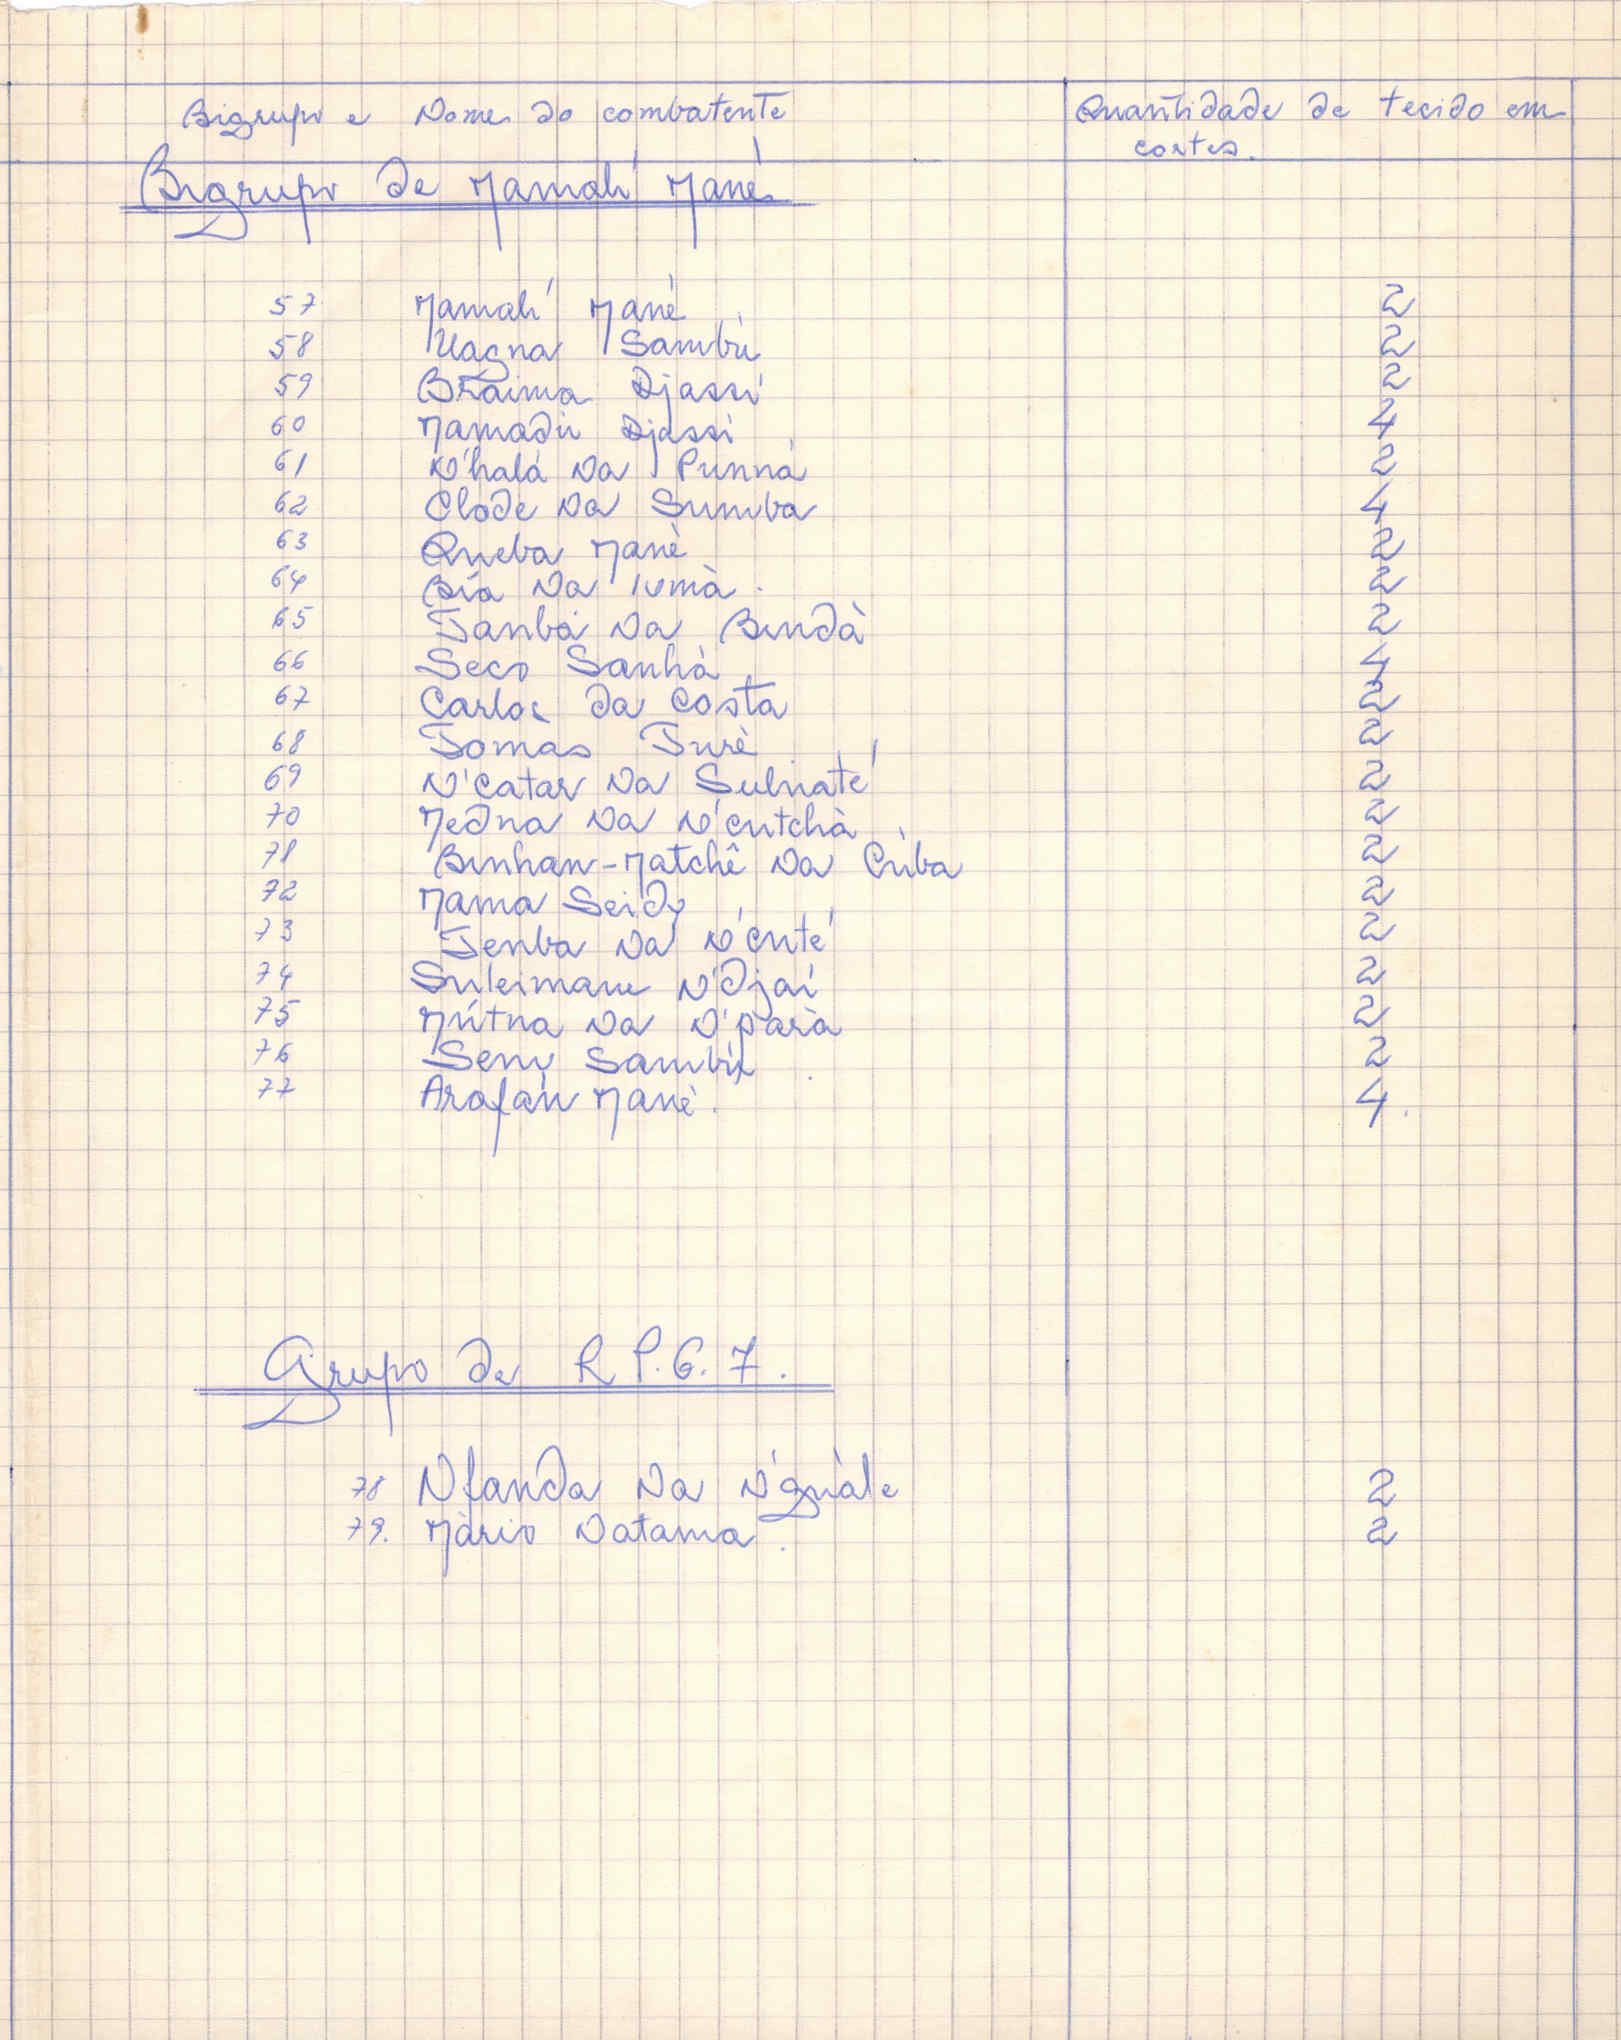 Bigrupo e Nome do combatente Quantidade de tecido em
cortes.
Bigrupo de Mamali Mané
57 Mamali Mané 2
58 Uagna Sambú 2
59 Braima Djassi 2
60 Mamadú Djassi 4
61 N'halá Na Punná 2
62 Clode Na Sumba 4
63 Queba Mané 2
64 Bia Na Iumà. 2
65 Tanbá Na Bindà 2
66 Seco Sanhà 4
67 Carlos da Costa 2
68 Tomas Turè 2
69 N'Catar Na Sulnaté 2
70 Medna Na N'cutchà 2
71 Binhan-Matchê Na Cúba 2
72 Mama Seidy 2
73 Tenba Na N'cuté 2
74 Suleimane N'Djai 2
75 Mútna Na N'parà 2
76 Seny Sambú. 2
77 Arafán Mané. 4.
Grupo de R P.G.7.
78 Nfanda Na N'guàle 2
79. Màrio Natama. 2